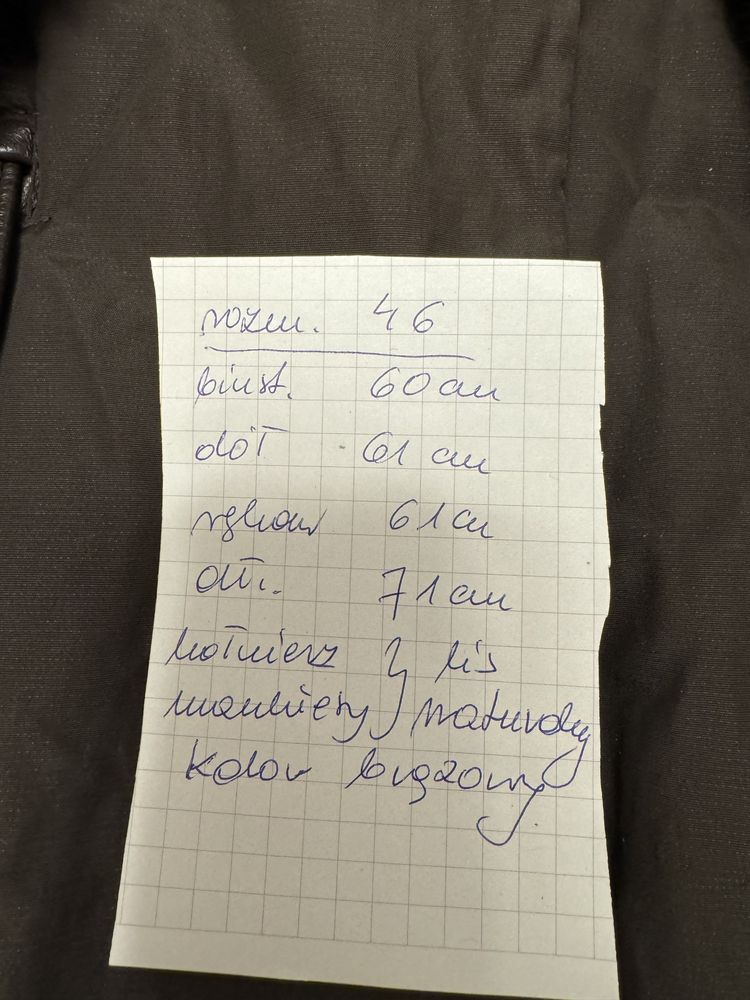 rozm. 46
biust. 60 cm
dół 61 cm
rękaw 61 cm
dł. 71 cm
kołnierz } lis
mankiety } naturalny
kolor brązowy